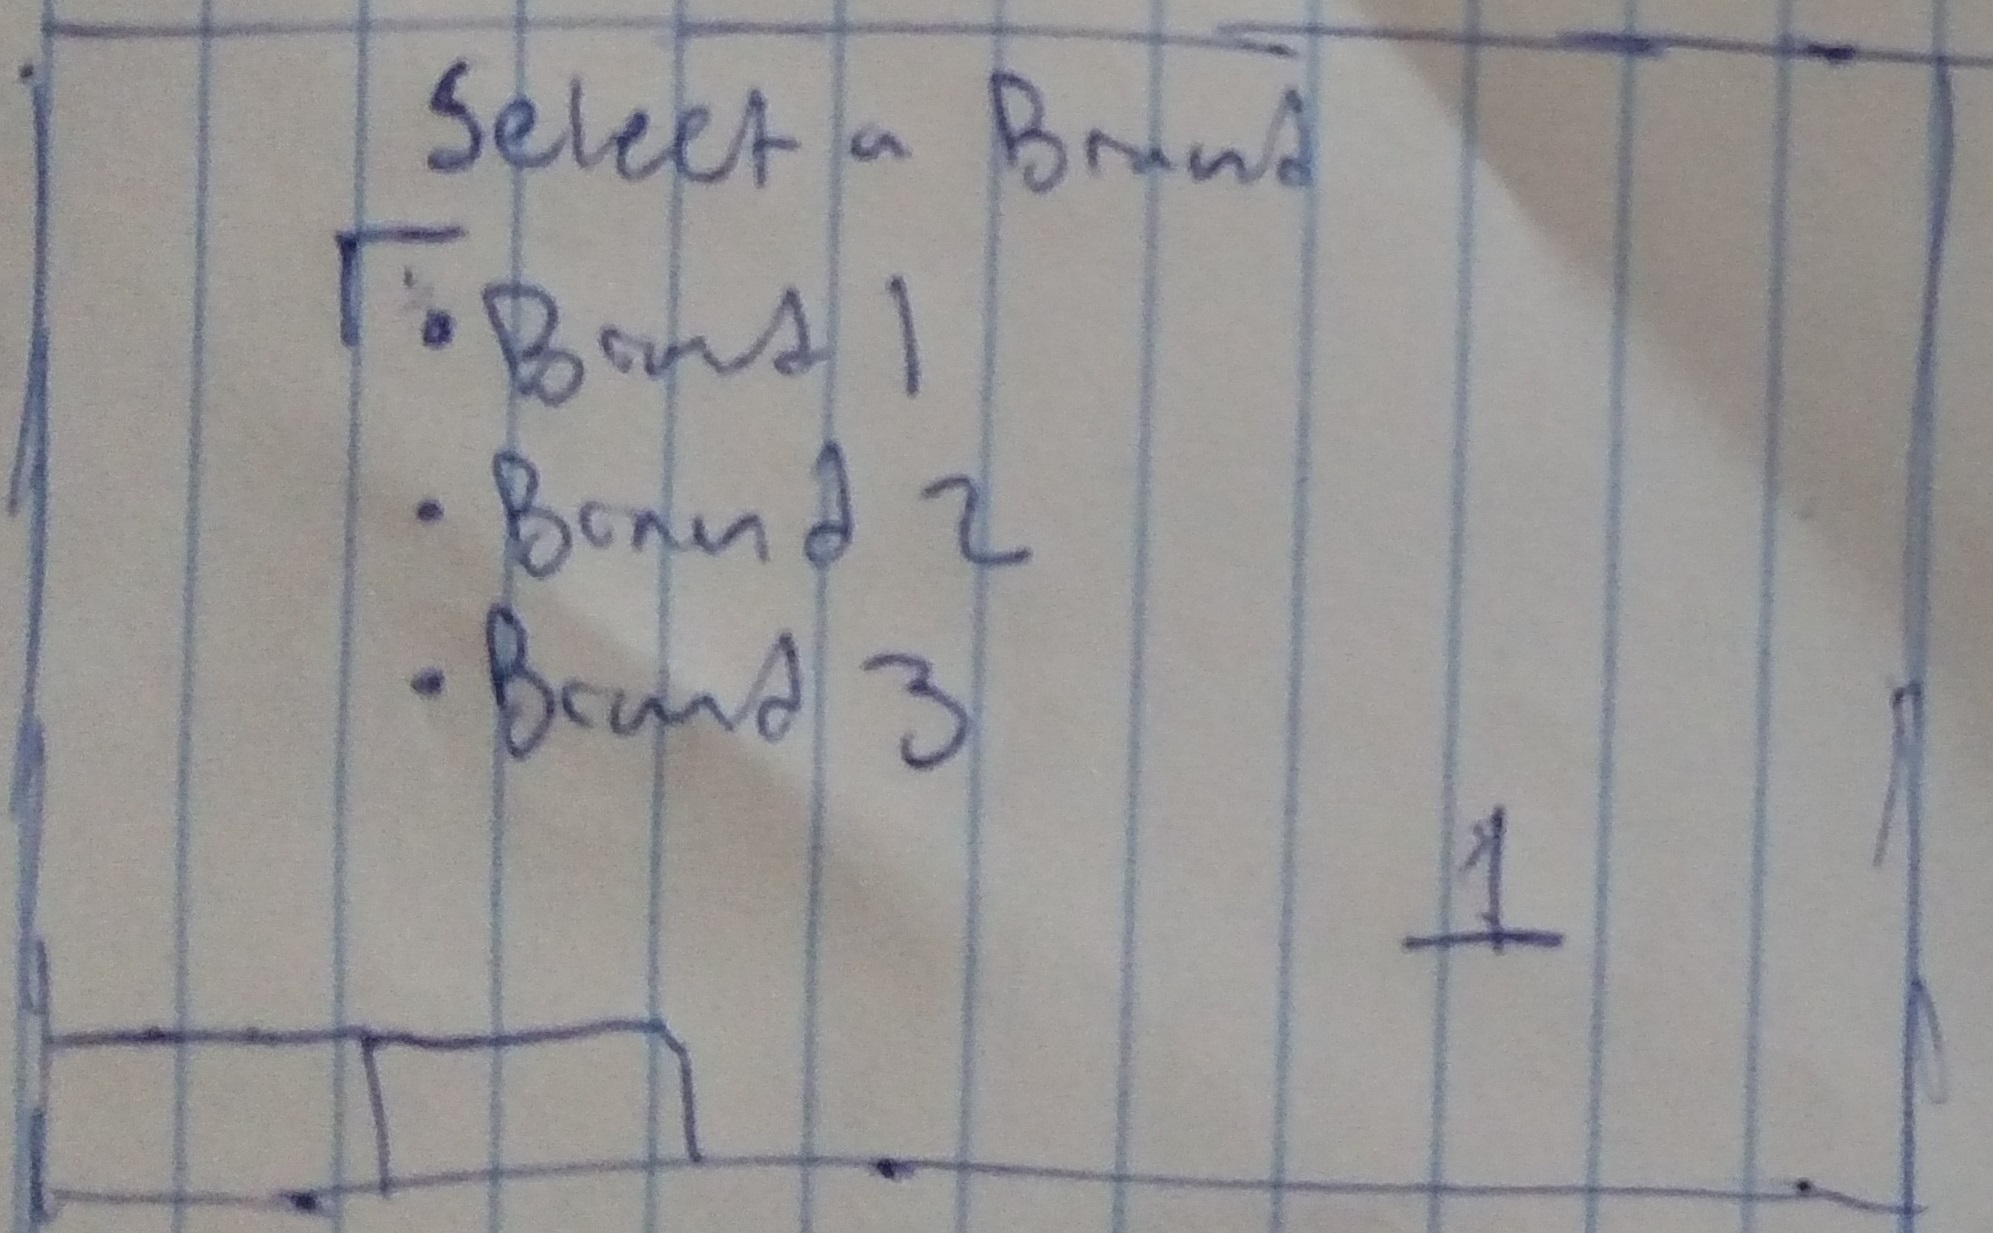 Select a Brand
• Brand 1
• Brand 2
• Brand 3
1